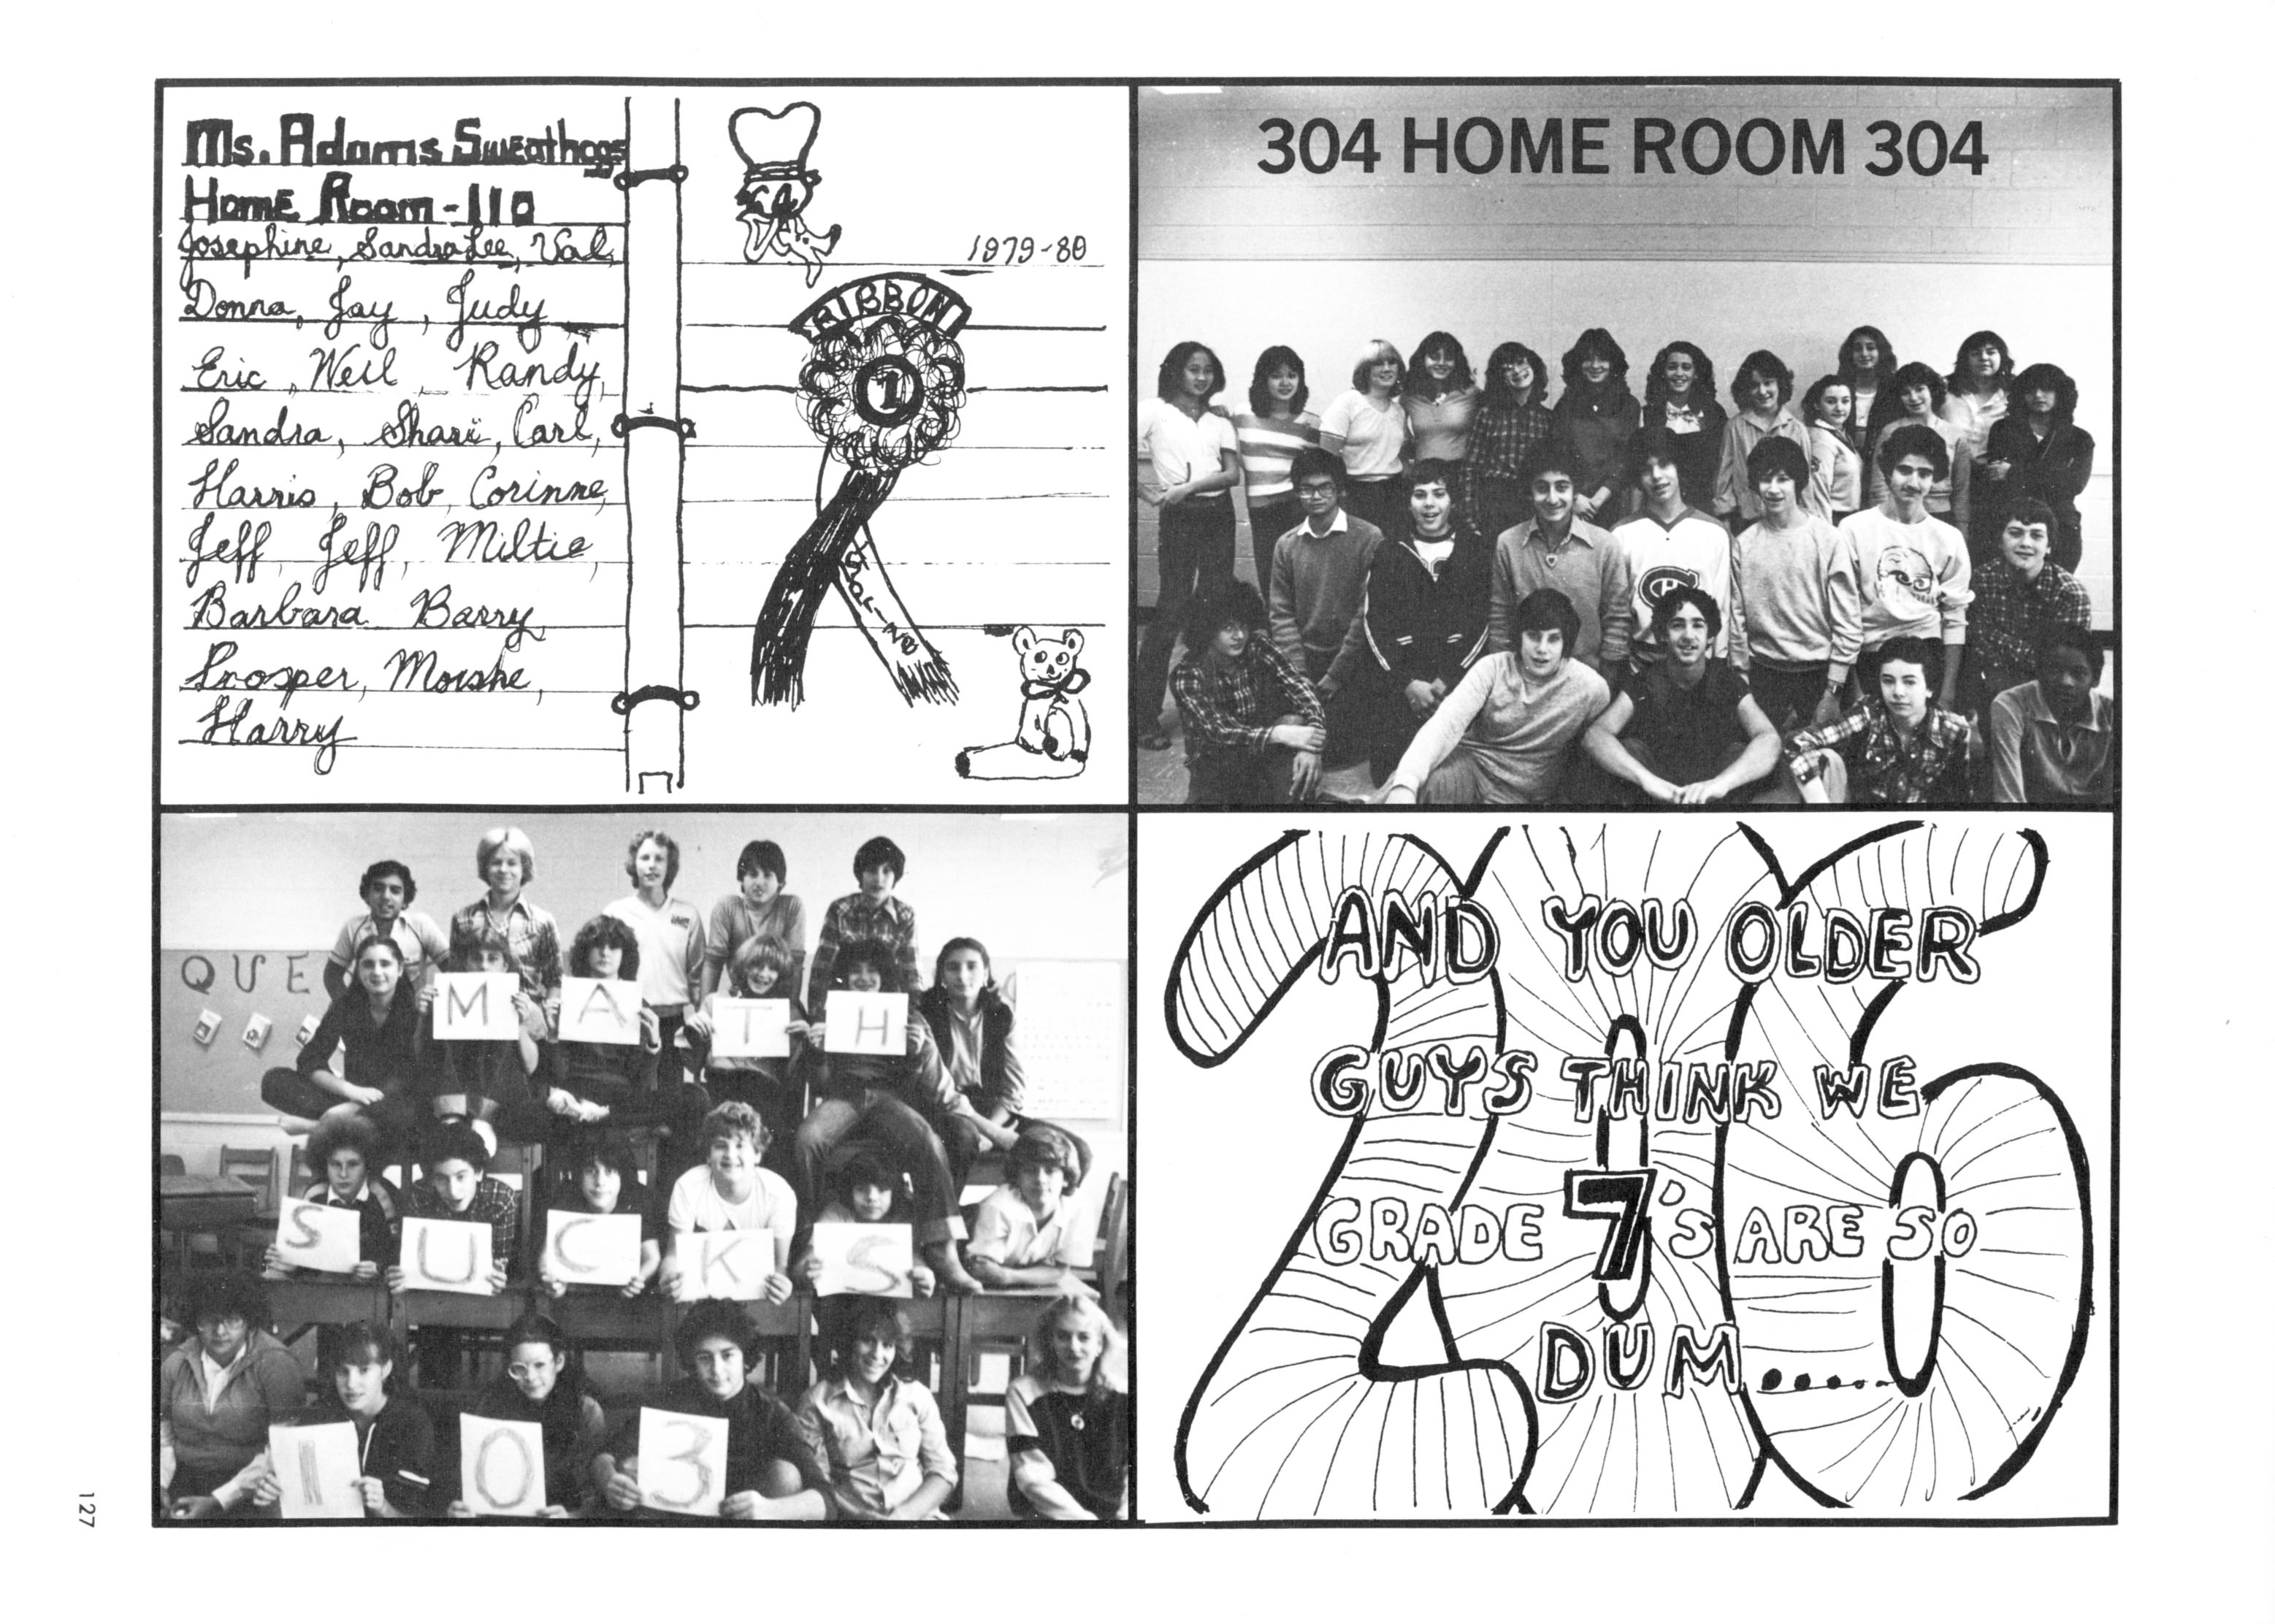 Ms. Adams Sweathogs
Home Room - 110
Josephine, Sandra Lee, Val,
Donna, Jay, Judy
Eric, Neil, Randy,
Sandra, Shari, Carl,
Harris, Bob, Corinne,
Jeff, Jeff, Miltie,
Barbara Barry,
Prosper, Moishe,
Harry
1979-80
RIBBON
1
304 HOME ROOM 304
QUE
MATH
SUCKS
103
AND YOU OLDER
GUYS THINK WE
GRADE 7'S ARE SO
DUM.....
127